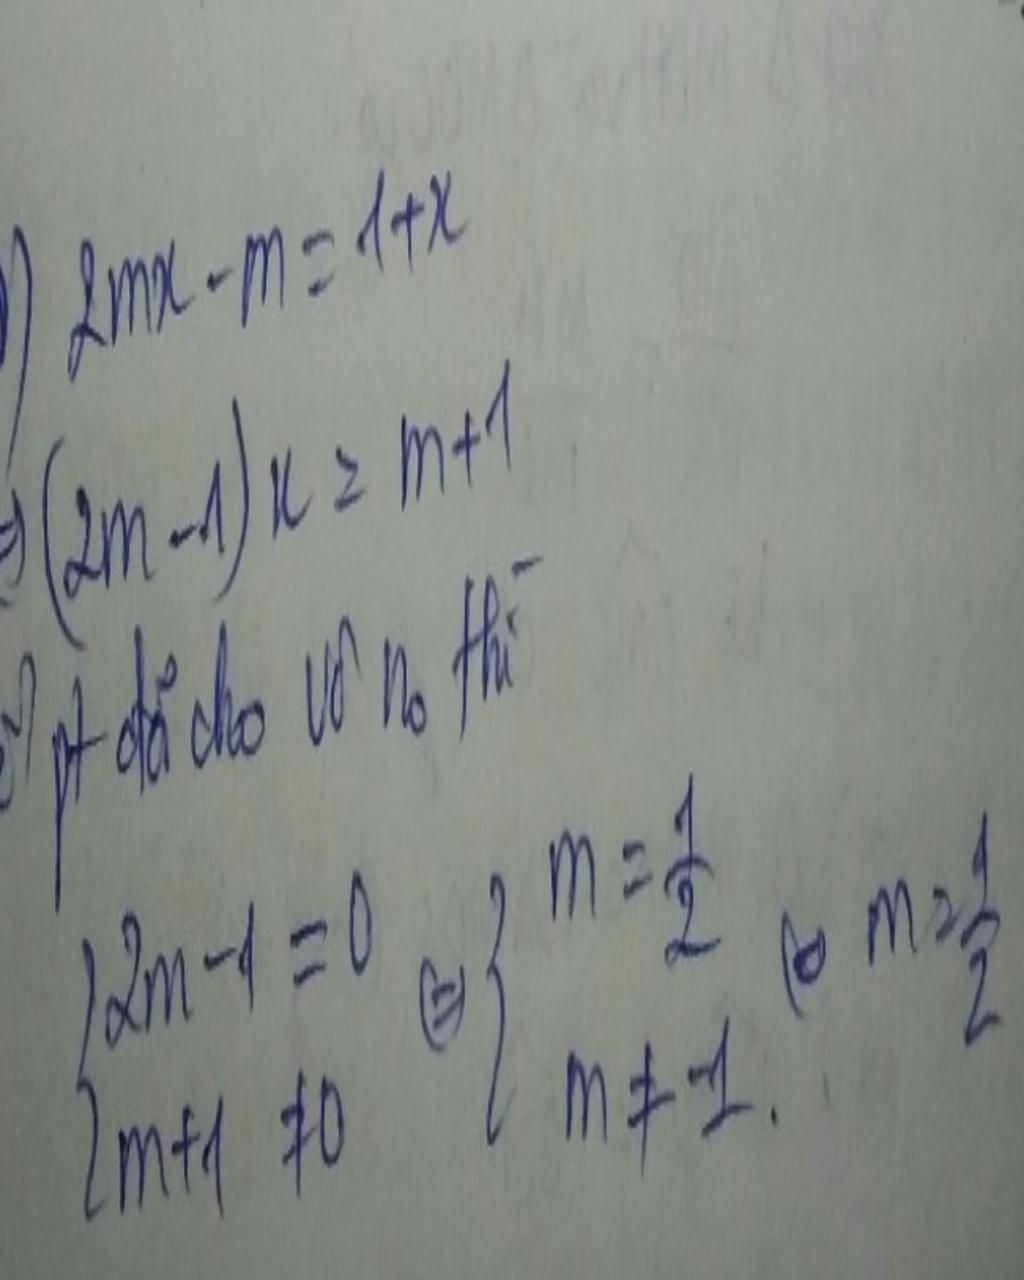 ) 2mx - m = 1 + x
⇒ (2m - 1) x = m + 1
pt đã cho vô no thì
{ 2m - 1 = 0 ⇔ { m = 1/2 ⇔ m = 1/2
{ m + 1 ≠ 0 { m ≠ -1.